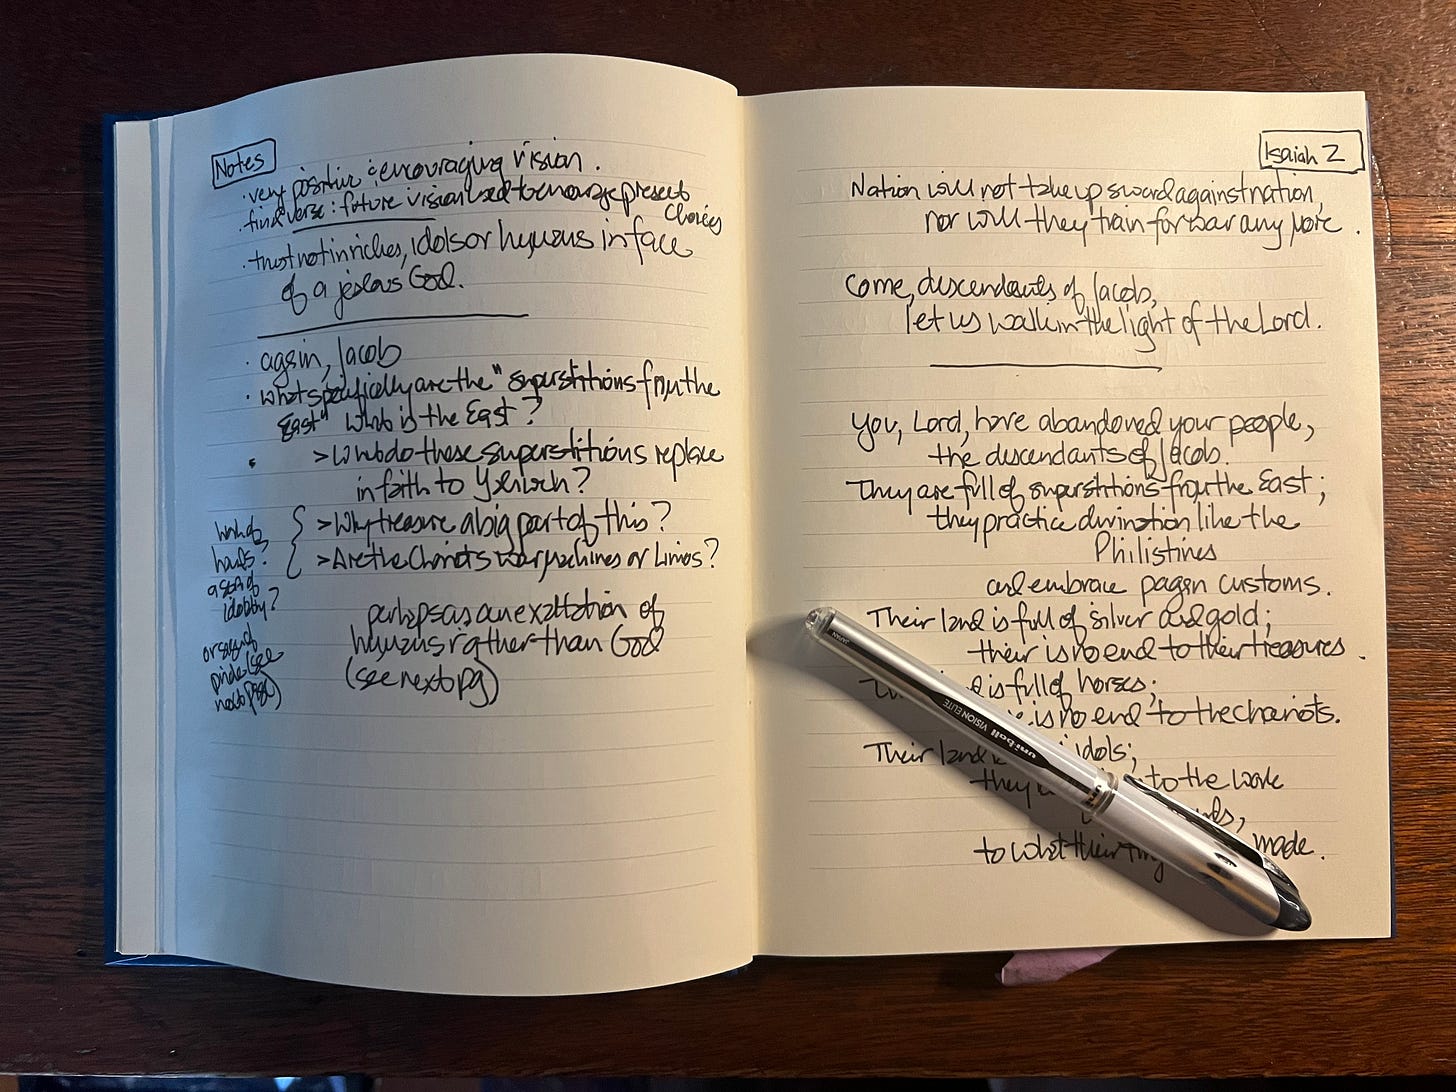 Notes
· very positive & encouraging vision.
· final verse: future vision used to encourage present
choices
· trust not in riches, idols or humans in face
of a jealous God.
· again, Jacob
· what specifically are the "superstitions from the
East" What is the East?
> What do these superstitions replace
in faith to Yahweh?
> Why treasure a big part of this?
> Are the Chariots war machines or Limos?
work of
hands?
a sort of
idolatry?
or sign of
pride (see
next pg)
perhaps as an exaltation of
humans rather than God
(see next pg)
Isaiah 2
Nation will not take up sword against nation,
nor will they train for war any more.
Come, descendants of Jacob,
let us walk in the light of the Lord.
You, Lord, have abandoned your people,
the descendants of Jacob.
They are full of superstitions from the East;
they practice divination like the
Philistines
and embrace pagan customs.
Their land is full of silver and gold;
their is no end to their treasures.
is full of horses;
is no end to the chariots.
Their land idols;
they to the work
to what their made.
uni-ball VISION ELITE
JAPAN